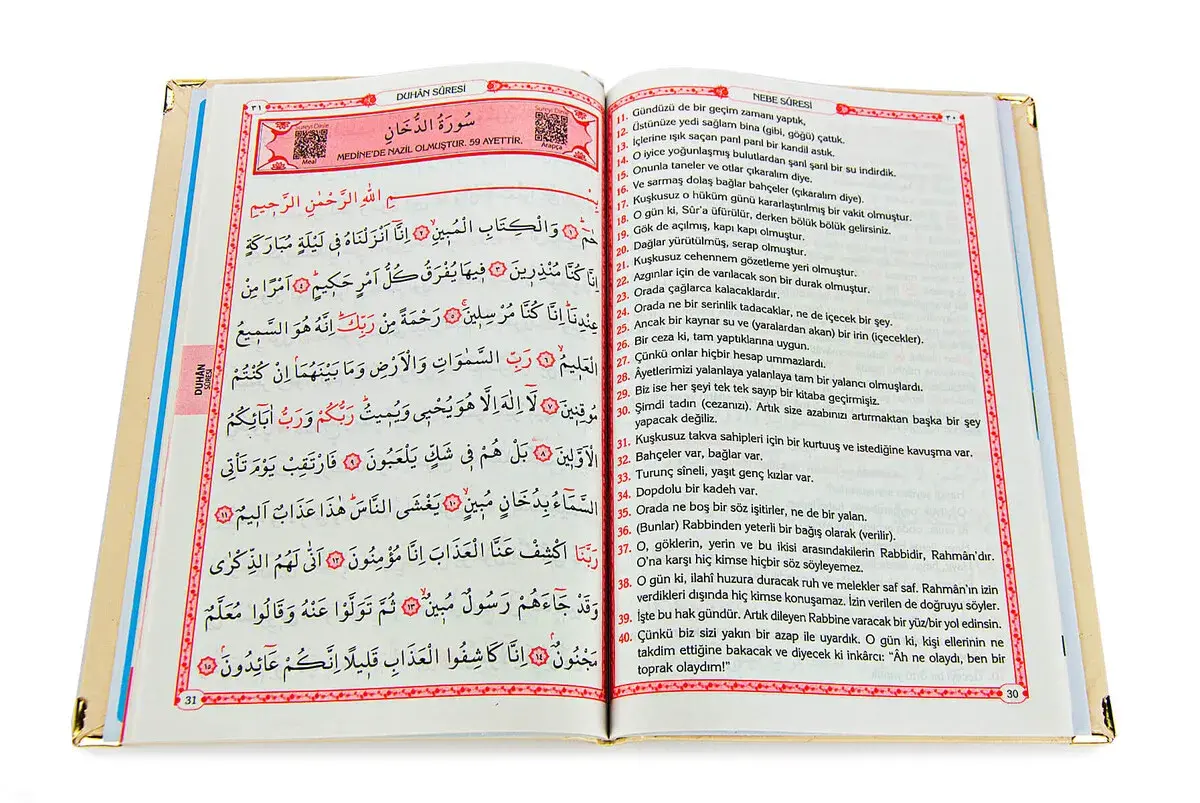 NEBE SÛRESİ
٣٠
11. Gündüzü de bir geçim zamanı yaptık,
12. Üstünüze yedi sağlam bina (gibi, göğü) çattık.
13. İçlerine ışık saçan parıl parıl bir kandil astık.
14. O iyice yoğunlaşmış bulutlardan şarıl şarıl bir su indirdik.
15. Onunla taneler ve otlar çıkaralım diye.
16. Ve sarmaş dolaş bağlar bahçeler (çıkaralım diye).
17. Kuşkusuz o hüküm günü kararlaştırılmış bir vakit olmuştur.
18. O gün ki, Sûr'a üfürülür, derken bölük bölük gelirsiniz.
19. Gök de açılmış, kapı kapı olmuştur.
20. Dağlar yürütülmüş, serap olmuştur.
21. Kuşkusuz cehennem gözetleme yeri olmuştur.
22. Azgınlar için de varılacak son bir durak olmuştur.
23. Orada çağlarca kalacaklardır.
24. Orada ne bir serinlik tadacaklar, ne de içecek bir şey.
25. Ancak bir kaynar su ve (yaralardan akan) bir irin (içecekler).
26. Bir ceza ki, tam yaptıklarına uygun.
27. Çünkü onlar hiçbir hesap ummazlardı.
28. Âyetlerimizi yalanlaya yalanlaya tam bir yalancı olmuşlardı.
29. Biz ise her şeyi tek tek sayıp bir kitaba geçirmişiz.
30. Şimdi tadın (cezanızı). Artık size azabınızı artırmaktan başka bir şey
yapacak değiliz.
31. Kuşkusuz takva sahipleri için bir kurtuuş ve istediğine kavuşma var.
32. Bahçeler var, bağlar var.
33. Turunç sîneli, yaşıt genç kızlar var.
34. Dopdolu bir kadeh var.
35. Orada ne boş bir söz işitirler, ne de bir yalan.
36. (Bunlar) Rabbinden yeterli bir bağış olarak (verilir).
37. O, göklerin, yerin ve bu ikisi arasındakilerin Rabbidir, Rahmân'dır.
O'na karşı hiç kimse hiçbir söz söyleyemez.
38. O gün ki, ilahî huzura duracak ruh ve melekler saf saf. Rahmân'ın izin
verdikleri dışında hiç kimse konuşamaz. İzin verilen de doğruyu söyler.
39. İşte bu hak gündür. Artık dileyen Rabbine varacak bir yüz/bir yol edinsin.
40. Çünkü biz sizi yakın bir azap ile uyardık. O gün ki, kişi ellerinin ne
takdim ettiğine bakacak ve diyecek ki inkârcı: "Âh ne olaydı, ben bir
toprak olaydım!"
30
٣١
DUHÂN SÛRESİ
Sureyi Dinle
Meal
سُورَةُ الدُّخَانِ
Sureyi Dinle
Arapça
MEDİNE'DE NAZİL OLMUŞTUR. 59 AYETTİR.
بِسْــــــمِ اللّٰهِ الرَّحْمٰنِ الرَّحِيمِ
حٰمٓۜ ﴿١﴾ وَالْكِتَابِ الْمُبِينِۙ ﴿٢﴾ اِنَّٓا اَنْزَلْنَاهُ فِي لَيْلَةٍ مُبَارَكَةٍ
اِنَّا كُنَّا مُنْذِرِينَ ﴿٣﴾ فِيهَا يُفْرَقُ كُلُّ اَمْرٍ حَكِيمٍۙ ﴿٤﴾ اَمْرًا مِنْ
عِنْدِنَاۜ اِنَّا كُنَّا مُرْسِلِينَۚ ﴿٥﴾ رَحْمَةً مِنْ رَبِّكَۜ اِنَّهُ هُوَ السَّمِيعُ
الْعَلِيمُۙ ﴿٦﴾ رَبِّ السَّمٰوَاتِ وَالْاَرْضِ وَمَا بَيْنَهُمَاۢ اِنْ كُنْتُمْ
مُوقِنِينَ ﴿٧﴾ لَٓا اِلٰهَ اِلَّا هُوَ يُحْيِي وَيُمِيتُۜ رَبُّكُمْ وَرَبُّ اٰبَٓائِكُمُ
الْاَوَّلِينَ ﴿٨﴾ بَلْ هُمْ فِي شَكٍّ يَلْعَبُونَ ﴿٩﴾ فَارْتَقِبْ يَوْمَ تَأْتِي
السَّمَٓاءُ بِدُخَانٍ مُبِينٍۙ ﴿١٠﴾ يَغْشَى النَّاسَۜ هٰذَا عَذَابٌ اَلِيمٌ ﴿١١﴾
رَبَّنَا اكْشِفْ عَنَّا الْعَذَابَ اِنَّا مُؤْمِنُونَ ﴿١٢﴾ اَنّٰى لَهُمُ الذِّكْرٰى
وَقَدْ جَٓاءَهُمْ رَسُولٌ مُبِينٌۙ ﴿١٣﴾ ثُمَّ تَوَلَّوْا عَنْهُ وَقَالُوا مُعَلَّمٌ
مَجْنُونٌۢ ﴿١٤﴾ اِنَّا كَاشِفُوا الْعَذَابِ قَلِيلًا اِنَّكُمْ عَٓائِدُونَۢ ﴿١٥﴾
DUHÂN
SÛRESİ
31